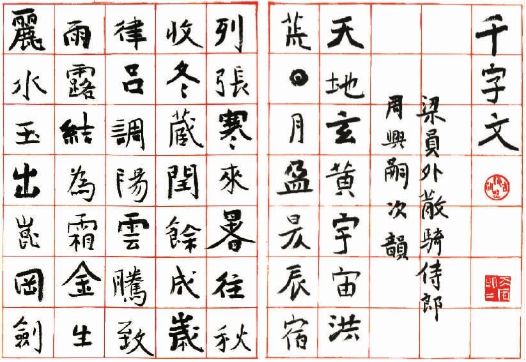 千字文
梁員外散騎侍郎
周興嗣次韻
天地玄黄宇宙洪
荒日月盈昃辰宿
列張寒來暑往秋
收冬藏閏餘成歲
律呂調陽雲騰致
雨露結為霜金生
麗水玉出崑岡劍